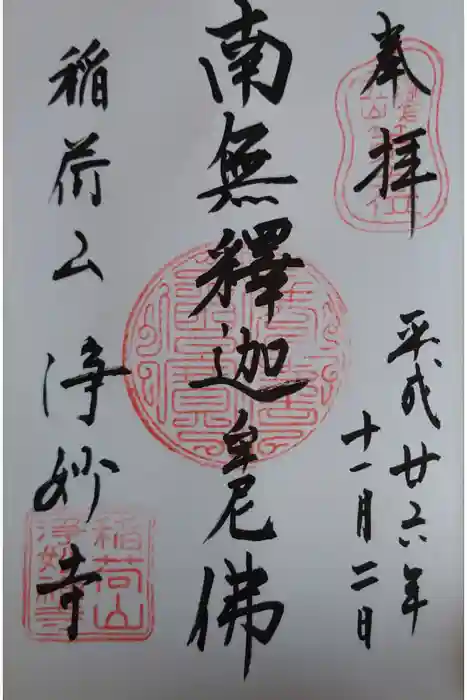 奉拝
平成廿六年
十一月二日
南無釋迦牟尼佛
稲荷山 浄妙寺
稲荷山
浄妙寺